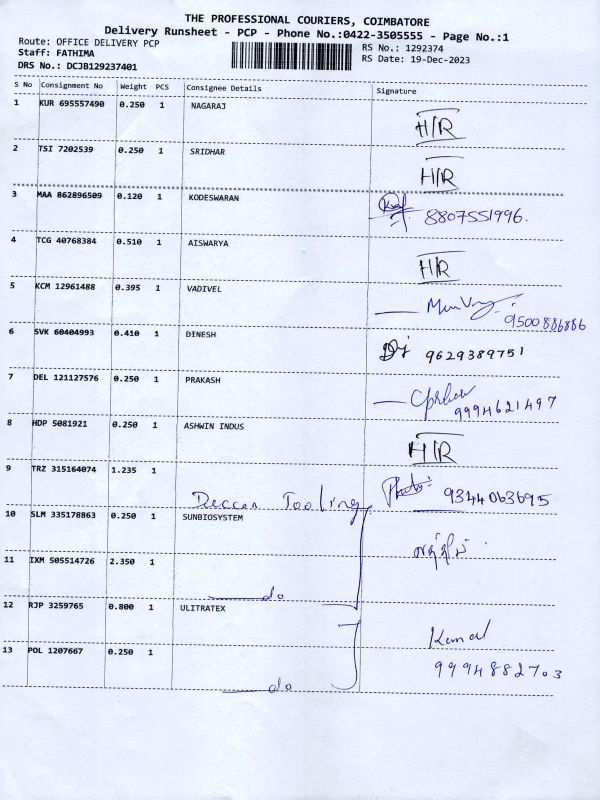 THE PROFESSIONAL COURIERS, COIMBATORE
Delivery Runsheet - PCP - Phone No.:0422-3505555 - Page No.:1
Route: OFFICE DELIVERY PCP
Staff: FATHIMA
DRS No.: DCJB129237401
RS No.: 1292374
RS Date: 19-Dec-2023
S No Consignment No Weight PCS Consignee Details Signature
1 KUR 695557490 0.250 1 NAGARAJ
H/R
2 TSI 7202539 0.250 1 SRIDHAR
H/R
3 MAA 862896509 0.120 1 KODESWARAN
8807551996.
4 TCG 40768384 0.510 1 AISWARYA
H/R
5 KCM 12961488 0.395 1 VADIVEL
9500886886
6 SVK 60404993 0.410 1 DINESH
9629389751
7 DEL 121127576 0.250 1 PRAKASH
9994621497
8 HDP 5081921 0.250 1 ASHWIN INDUS
H/R
9 TRZ 315164074 1.235 1
Deccan Tooling 9344063695
10 SLM 335178863 0.250 1 SUNBIOSYSTEM
11 IXM 505514726 2.350 1
do
12 RJP 3259765 0.800 1 ULITRATEX
Kamal
13 POL 1207667 0.250 1
9994882703
do